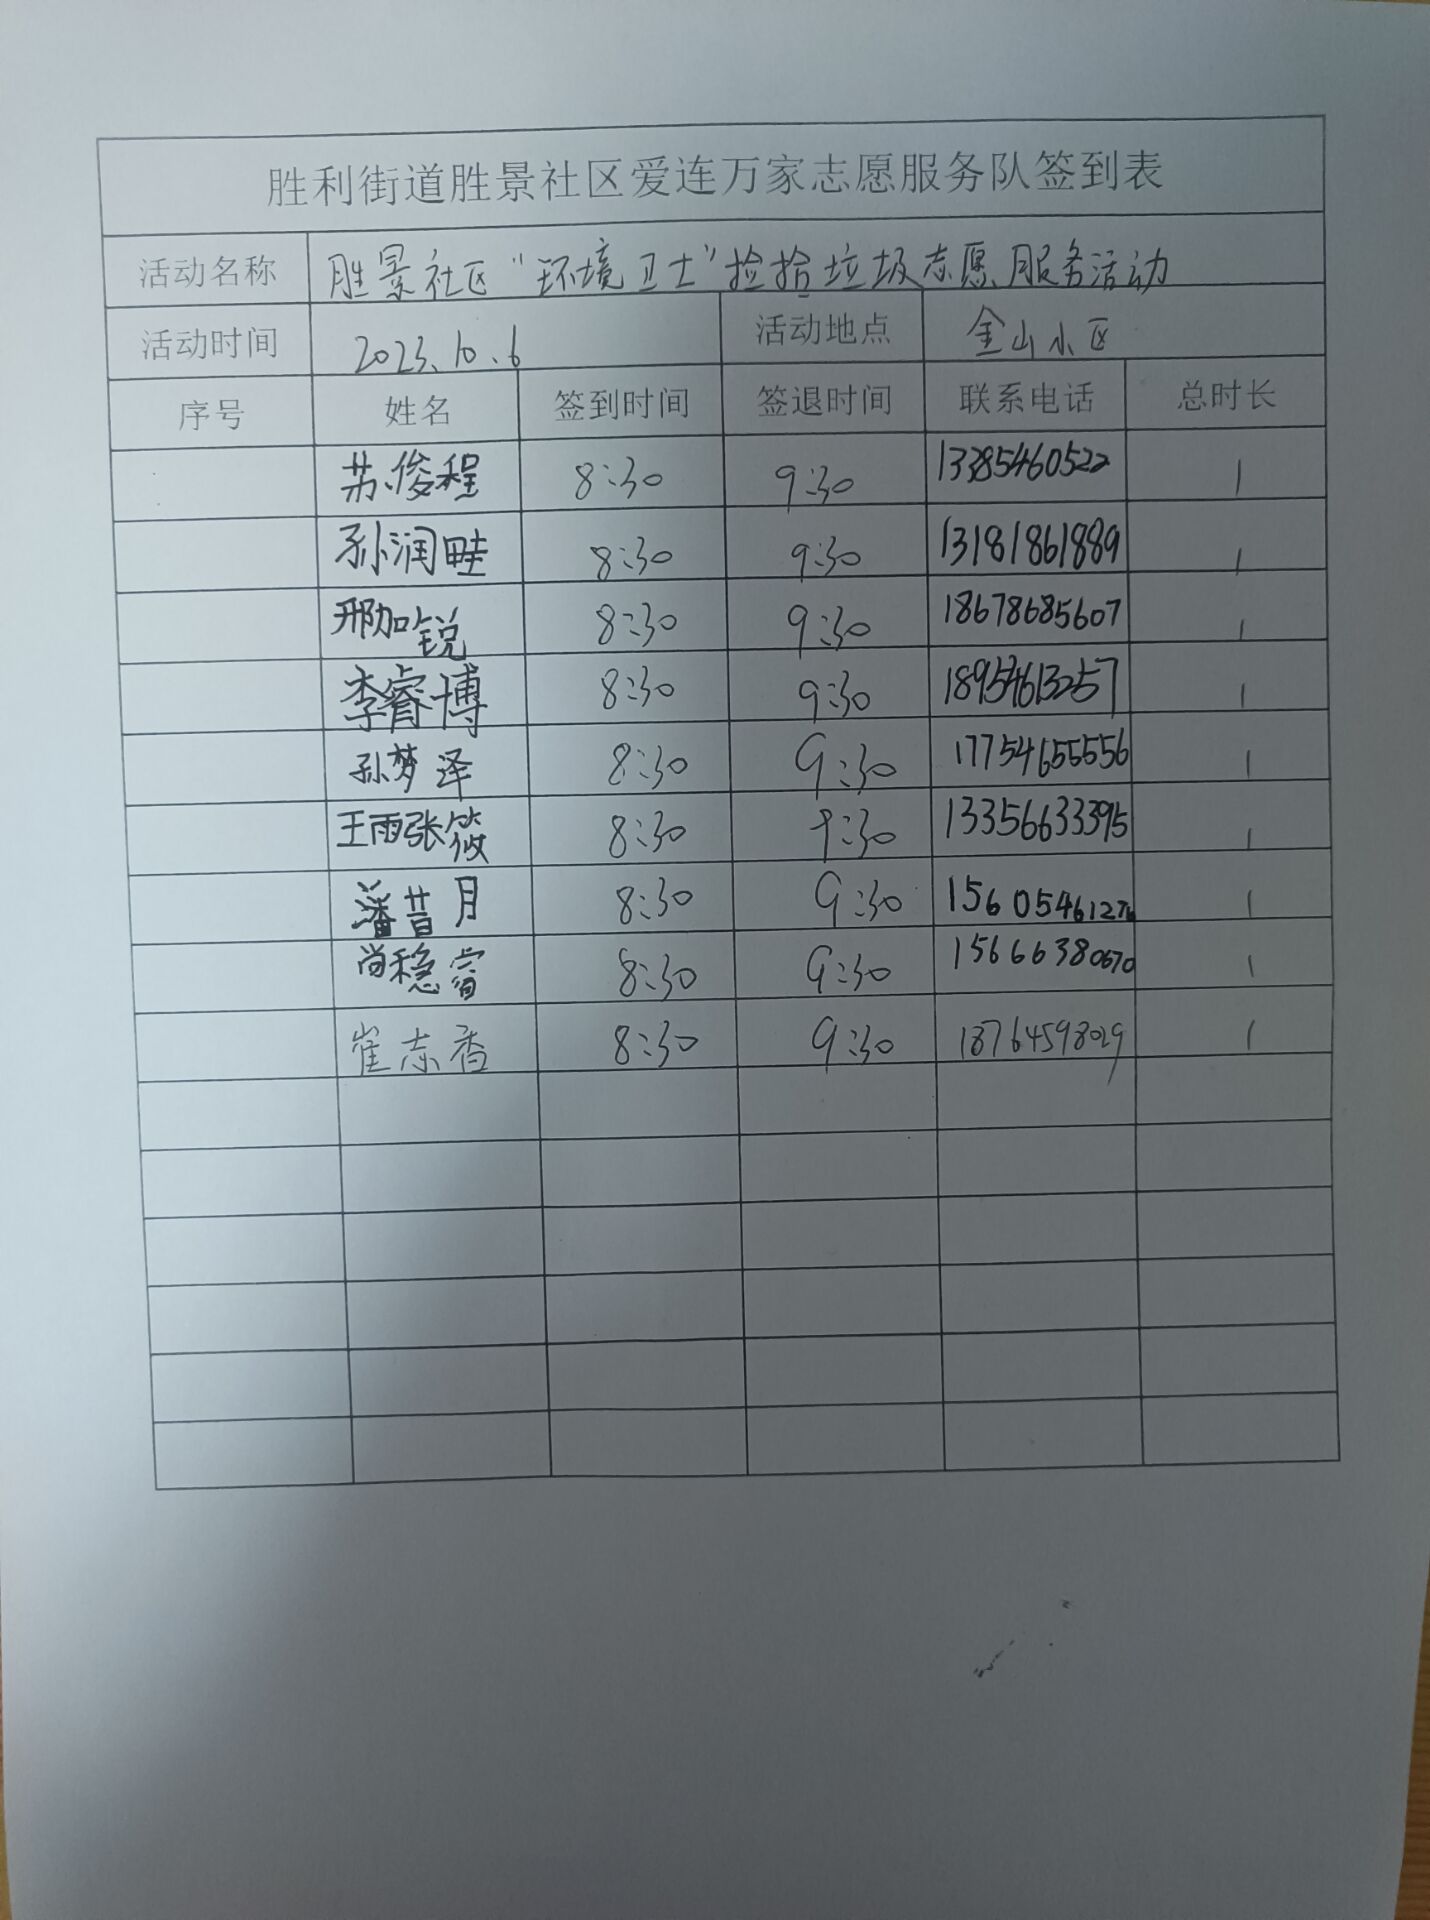 胜利街道胜景社区爱连万家志愿服务队签到表
活动名称 胜景社区“环境卫士”捡拾垃圾志愿服务活动
活动时间 2023.10.6 活动地点 金山小区
序号 姓名 签到时间 签退时间 联系电话 总时长
苏俊程 8:30 9:30 13385460522 1
孙润畦 8:30 9:30 13181861889 1
邢加锐 8:30 9:30 18678685607 1
李睿博 8:30 9:30 18954613257 1
孙梦泽 8:30 9:30 17754655556 1
王雨张筱 8:30 9:30 13356633395 1
潘昔月 8:30 9:30 15605461276 1
尚稳睿 8:30 9:30 15666380670 1
崔志香 8:30 9:30 18764598029 1